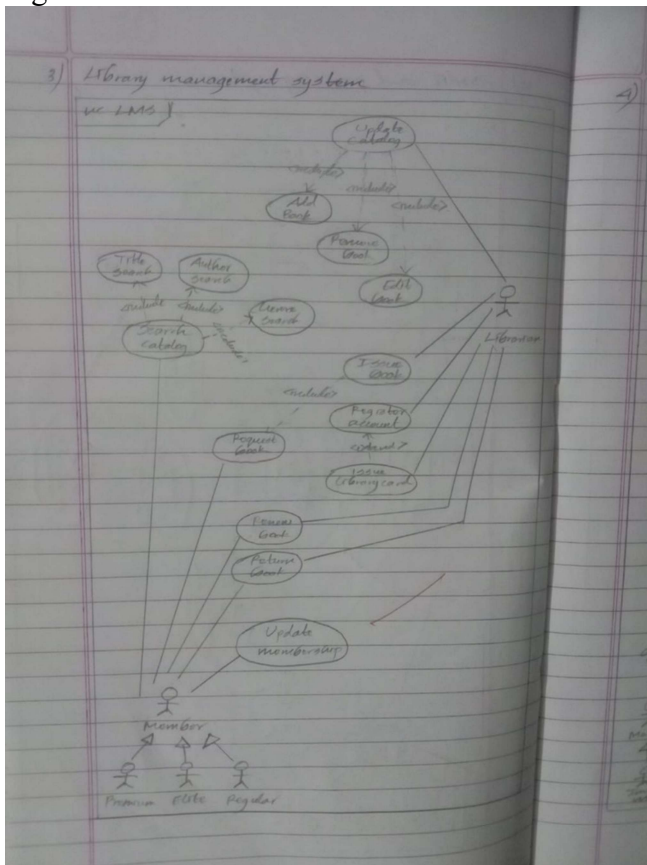 3) Library management system
4)
uc LMS
Update
catalog
<include>
<include>
<include>
Add
Book
Remove
book
Edit
book
Title
Search
Author
search
Genre
search
include
<include>
<include>
Search
catalog
Librarian
Issue
book
<include>
Register
account
Request
book
<extend>
Issue
Library card
Renew
book
Return
book
Update
membership
Member
Premium Elite Regular